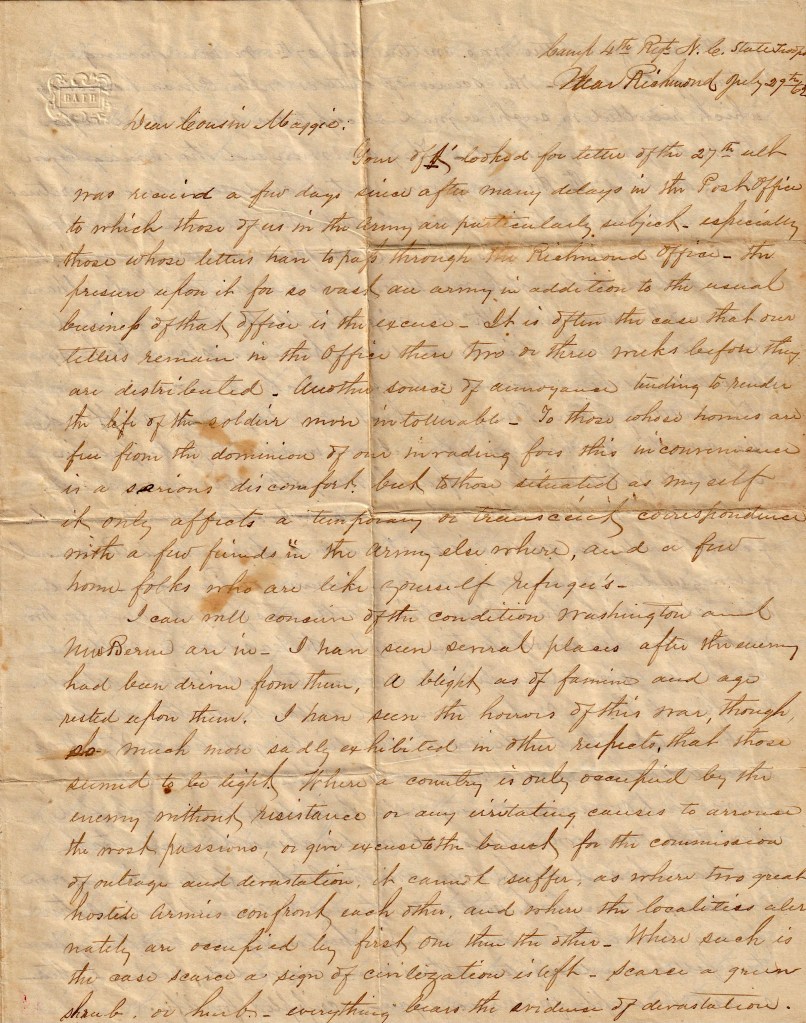 Camp 4th Regt N. C. State Troops
Near Richmond July 29th /62
BATH
Dear Cousin Maggie:
Your oft looked for letter of the 27th ult
was received a few days since after many delays in the Post Office
to which those of us in the Army are particularly subject - especially
those whose letters have to pass through the Richmond Office - the
presure upon it for so vast an army in addition to the usual
business of that office is the excuse - It is often the case that our
letters remain in the Office there two or three weeks before they
are distributed - Another source of annoyance tending to render
the life of the soldier more intollerable - To those whose homes are
free from the dominion of our invading foes this inconvenience
is a serious discomfort. but to those situated as myself
it only affects a temporary or transcient correspondence
with a few friends in the Army elsewhere, and a few
home folks who are like yourself refugee's -
I can well conceive of the condition Washington and
New Berne are in - I have seen several places after the enemy
had been driven from them, A blight as of famine and age
rested upon them. I have seen the horrors of this war, though,
so much more sadly exhibited in other respects, that those
seemed to be light. Where a country is only occupied by the
enemy without resistance or any irritating causes to arrouse
the worst passions, or give excuse to the basest for the commission
of outrage and devastation, it cannot suffer, as where two great
hostile Armies confront each other, and where the localities alter
nately are occupied by first one then the other - Where such is
the case scarce a sign of civilization is left - scarce a green
shrub, or herb - everything bears the evidence of devastation.